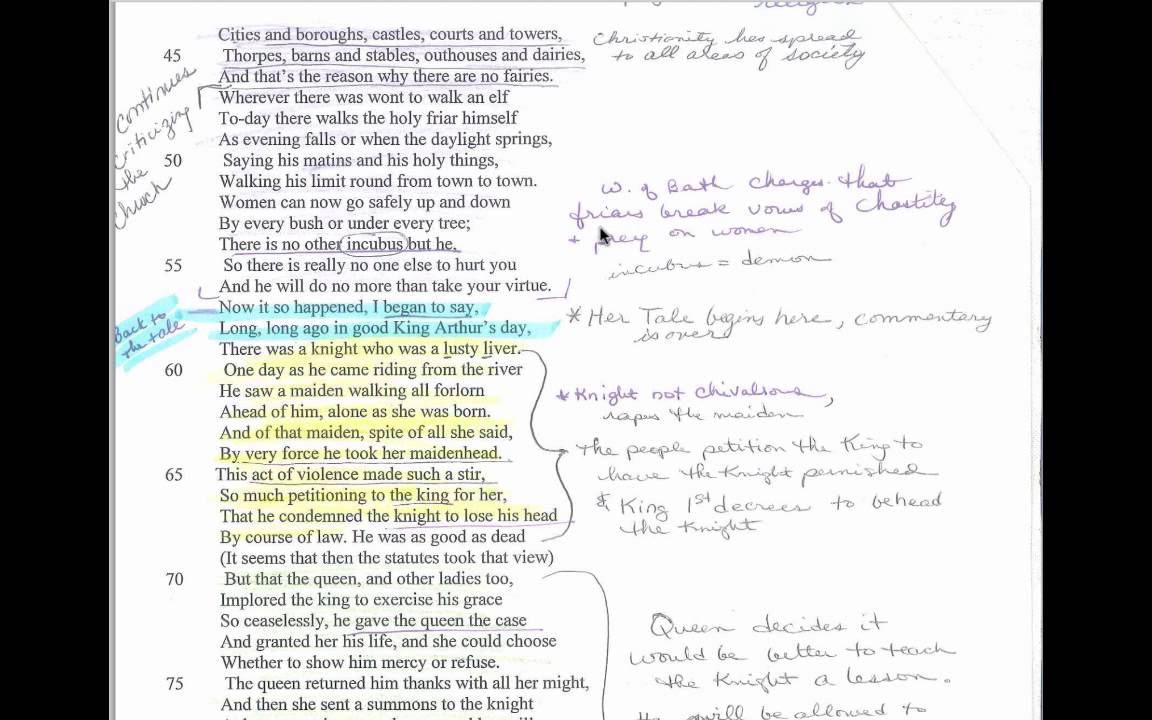 Cities and boroughs, castles, courts and towers,
Christianity has spread
to all areas of society
45 Thorpes, barns and stables, outhouses and dairies,
And that's the reason why there are no fairies.
continues
criticizing
the
church
Wherever there was wont to walk an elf
To-day there walks the holy friar himself
As evening falls or when the daylight springs,
50 Saying his matins and his holy things,
Walking his limit round from town to town.
Women can now go safely up and down
By every bush or under every tree;
There is no other incubus but he,
W. of Bath charges that
friars break vows of Chastity
+ prey on women
incubus = demon
55 So there is really no one else to hurt you
And he will do no more than take your virtue.
Back to
the tale
Now it so happened, I began to say,
Long, long ago in good King Arthur's day,
* Her Tale begins here, commentary
is over
There was a knight who was a lusty liver.
60 One day as he came riding from the river
He saw a maiden walking all forlorn
Ahead of him, alone as she was born.
And of that maiden, spite of all she said,
By very force he took her maidenhead.
* Knight not chivalrous,
rapes the maiden
65 This act of violence made such a stir,
So much petitioning to the king for her,
That he condemned the knight to lose his head
By course of law. He was as good as dead
(It seems that then the statutes took that view)
The people petition the King to
have the Knight punished
& King 1st decrees to behead
the Knight
70 But that the queen, and other ladies too,
Implored the king to exercise his grace
So ceaselessly, he gave the queen the case
And granted her his life, and she could choose
Whether to show him mercy or refuse.
75 The queen returned him thanks with all her might,
And then she sent a summons to the knight
Queen decides it
would be better to teach
the Knight a lesson.
He will be allowed to